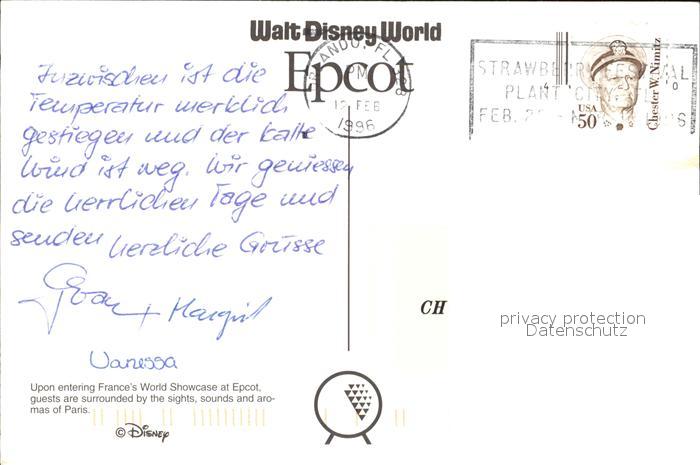 Walt Disney World
Epcot
Inzwischen ist die
Temperatur merklich
gestiegen und der kalte
Wind ist weg. Wir geniessen
die herrlichen Tage und
senden herzliche Grüsse
+ Margrit
Vanessa
Upon entering France's World Showcase at Epcot,
guests are surrounded by the sights, sounds and aro-
mas of Paris.
© Disney
ORLANDO, FL
PM
12 FEB
1996
STRAWBERRY FESTIVAL
PLANT CITY
FEB.
USA
50
Chester W. Nimitz
CH
privacy protection
Datenschutz